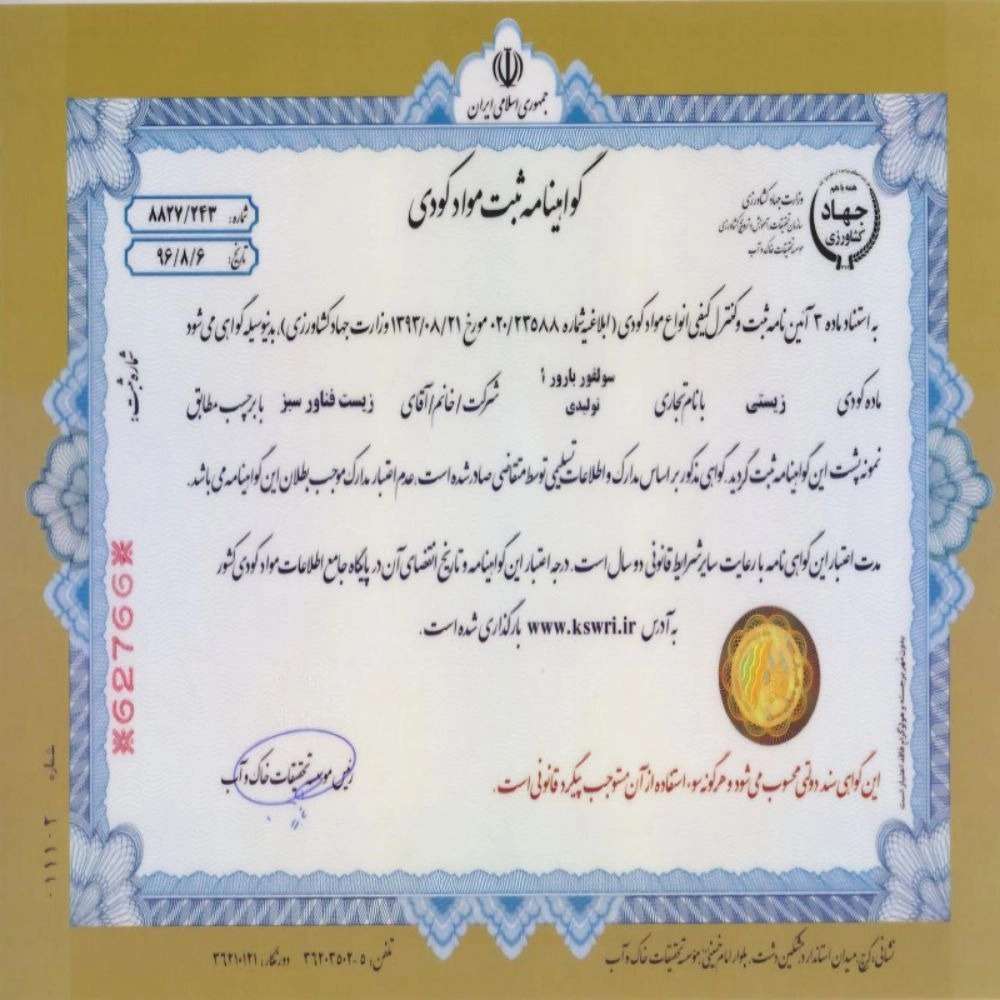 جمهوری اسلامی ایران
گواهینامه ثبت مواد کودی
همه با هم
جهاد
کشاورزی
وزارت جهاد کشاورزی
سازمان تحقیقات، آموزش و ترویج کشاورزی
موسسه تحقیقات خاک و آب
شماره: ۸۸۲۷/۲۴۳
تاریخ: ۹۶/۸/۶
به استناد ماده ۳ آئین نامه ثبت و کنترل کیفی انواع مواد کودی (ابلاغیه شماره ۰۲۰/۲۳۵۸۸ مورخ ۱۳۹۳/۰۸/۲۱ وزارت جهاد کشاورزی)، بدینوسیله گواهی می شود
ماده کودی زیستی با نام تجاری سولفور بارور ۱ تولیدی شرکت/خانم/آقای زیست فناور سبز با برچسب مطابق
نمونه پشت این گواهینامه ثبت گردید. گواهی مذکور بر اساس مدارک و اطلاعات تسلیمی توسط متقاضی صادر شده است، عدم اعتبار مدارک موجب بطلان این گواهینامه می باشد.
مدت اعتبار این گواهی نامه با رعایت سایر شرایط قانونی دو سال است. درجه اعتبار این گواهینامه و تاریخ انقضای آن در پایگاه جامع اطلاعات مواد کودی کشور
به آدرس www.kswri.ir بارگذاری شده است.
شماره ثبت:
※62766※
رئیس موسسه تحقیقات خاک و آب
این گواهی سند دولتی محسوب می شود و هرگونه سوء استفاده از آن مستوجب پیگرد قانونی است.
بدون مهر برجسته و هولوگرام فاقد اعتبار است
شماره ۰۱۱۱۰۲
نشانی: کرج، میدان استاندارد، مشکین دشت، بلوار امام خمینی، موسسه تحقیقات خاک و آب
تلفن: ۵-۳۶۲۰۳۵۰۲ دورنگار: ۳۶۲۱۰۱۲۱